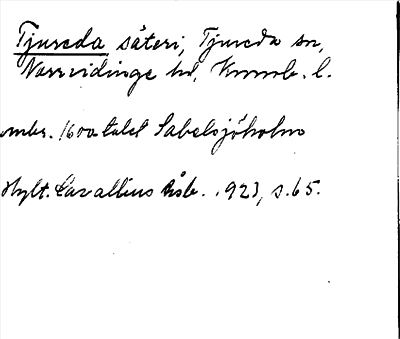 Tjureda säteri, Tjureda sn,
Norrvidinge hd, Kronob. l.
omkr. 1600 talet Sabelsjöholm
Hylt. Cavallius årsb. 1923, s. 65.